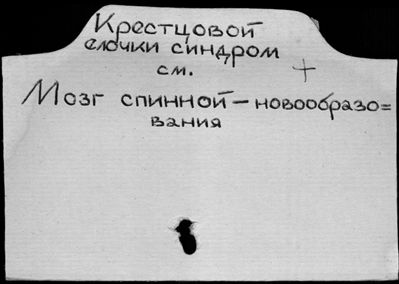 Крестцовой
елочки синдром
см. +
Мозг спинной - новообразо=
вания